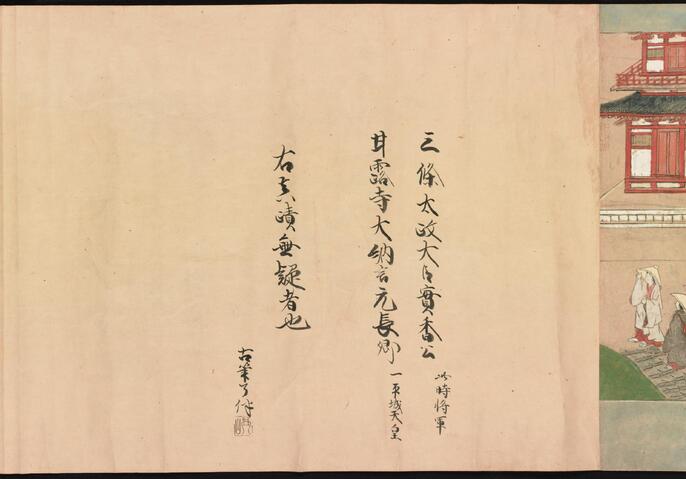 三條太政大臣實香公
此時将軍
甘露寺大納言元長卿
一平城天皇
右真蹟無疑者也
古筆了伴